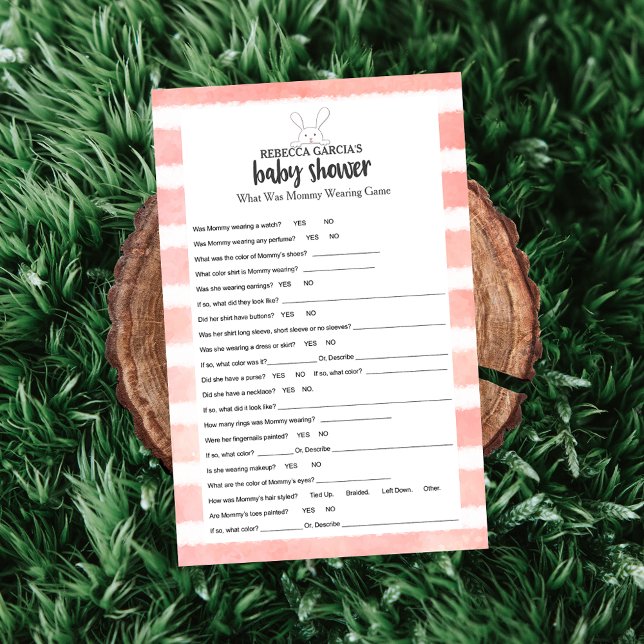 REBECCA GARCIA'S
baby shower
What Was Mommy Wearing Game
Was Mommy wearing a watch? YES NO
Was Mommy wearing any perfume? YES NO
What was the color of Mommy's shoes? ____________
What color shirt is Mommy wearing? ____________
Was she wearing earrings? YES NO
If so, what did they look like? ____________
Did her shirt have buttons? YES NO
Was her shirt long sleeve, short sleeve or no sleeves? ____________
Was she wearing a dress or skirt? YES NO
If so, what color was it? ____________ Or, Describe ____________
Did she have a purse? YES NO If so, what color? ____________
Did she have a necklace? YES NO.
If so, what did it look like? ____________
How many rings was Mommy wearing? ____________
Were her fingernails painted? YES NO
If so, what color? ____________ Or, Describe ____________
Is she wearing makeup? YES NO
What are the color of Mommy's eyes? ____________
How was Mommy's hair styled? Tied Up. Braided. Left Down. Other.
Are Mommy's toes painted? YES NO
If so, what color? ____________ Or, Describe ____________